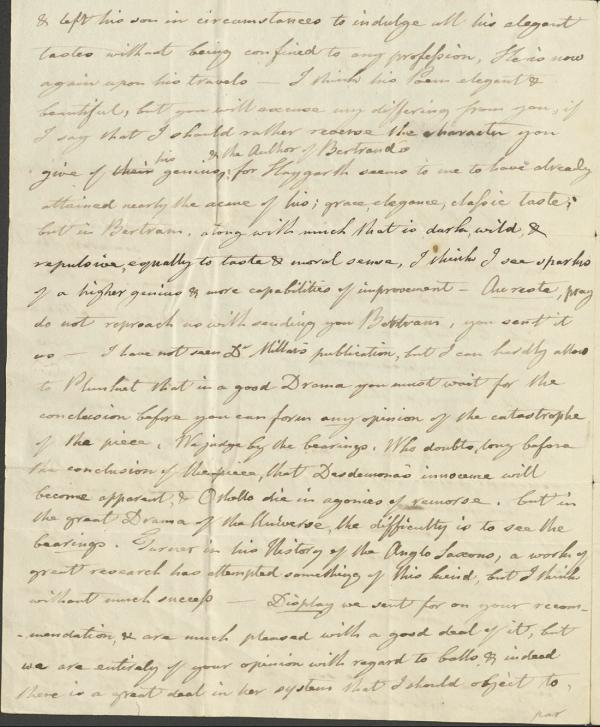 & left his son in circumstances to indulge all his elegant
tastes without being confined to any profession, He is now
again upon his travels — I think his Poem elegant &
beautiful, but you will excuse my differing from you, if
I say that I should rather reverse the character you
his & the Author of Bertrand's
give of their genius; for Haygarth seems to me to have already
attained nearly the acme of his; grace, elegance, classic taste;
but in Bertram, along with much that is dark, wild, &
repulsive, equally to taste & moral sense, I think I see sparks
of a higher genius & more capabilities of improvement — Au reste, pray
do not reproach us with sending you Bertram, you sent it
us — I have not seen Dr Millar's publication, but I can hardly allow
to Plunket that in a good Drama you must wait for the
conclusion before you can form any opinion of the catastrophe
of the piece. We judge by the bearings. Who doubts, long before
the conclusion of the piece, that Desdemona's innocence will
become apparent, & Othello die in agonies of remorse. but in
the great Drama of the Universe, the difficulty is to see the
bearings. Turner in his History of the Anglo Saxons, a work of
great research has attempted something of this kind, but I think
without much success — Display we sent for on your recom-
-mendation, & are much pleased with a good deal of it, but
we are entirely of your opinion with regard to balls, & indeed
there is a great deal in her system that I should object to,
par